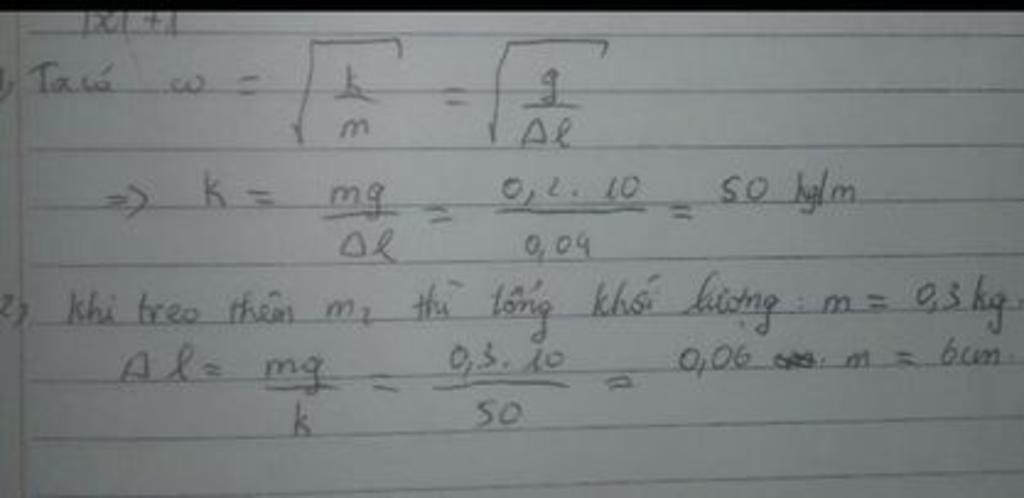 |x| + 1
1, Ta có ω = √(k/m) = √(g/Δl)
=> k = mg/Δl = 0,2.10/0,04 = 50 kg/m
2) khi treo thêm m₂ thì tổng khối lượng: m = 0,3kg.
Δl = mg/k = 0,3.10/50 = 0,06 m = 6cm.